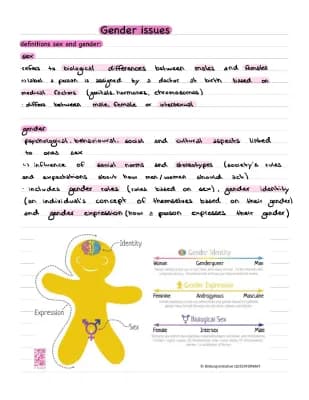 Gender issues
definitions sex and gender:
sex
refers to biological differences between males and females
label a person is assigned by a doctor at birth based on
medical factors (genitals, hormones, chromosomes)
· differs between male, female or intersexual
gender
psychological, behavioural, social and cultural aspects linked
to ones sex
influence of social norms and stereotypes (society's rules
and expectations about how men/women should act)
· includes gender roles (roles based on sex), gender identity
(an individual's concept of themselves based on their gender)
and gender expression (how a person expresses their gender)
Identity
Expression
Sex
Gender Identity
Woman Genderqueer Man
Gender Expression
Feminine Androgynous Masculine
Biological Sex
Female Intersex Male